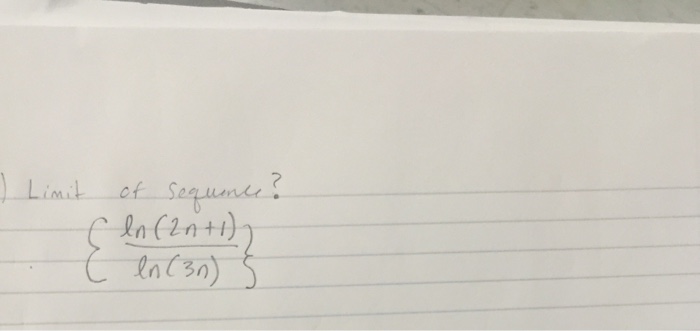 ) Limit of sequence?
{ ln(2n+1) / ln(3n) }